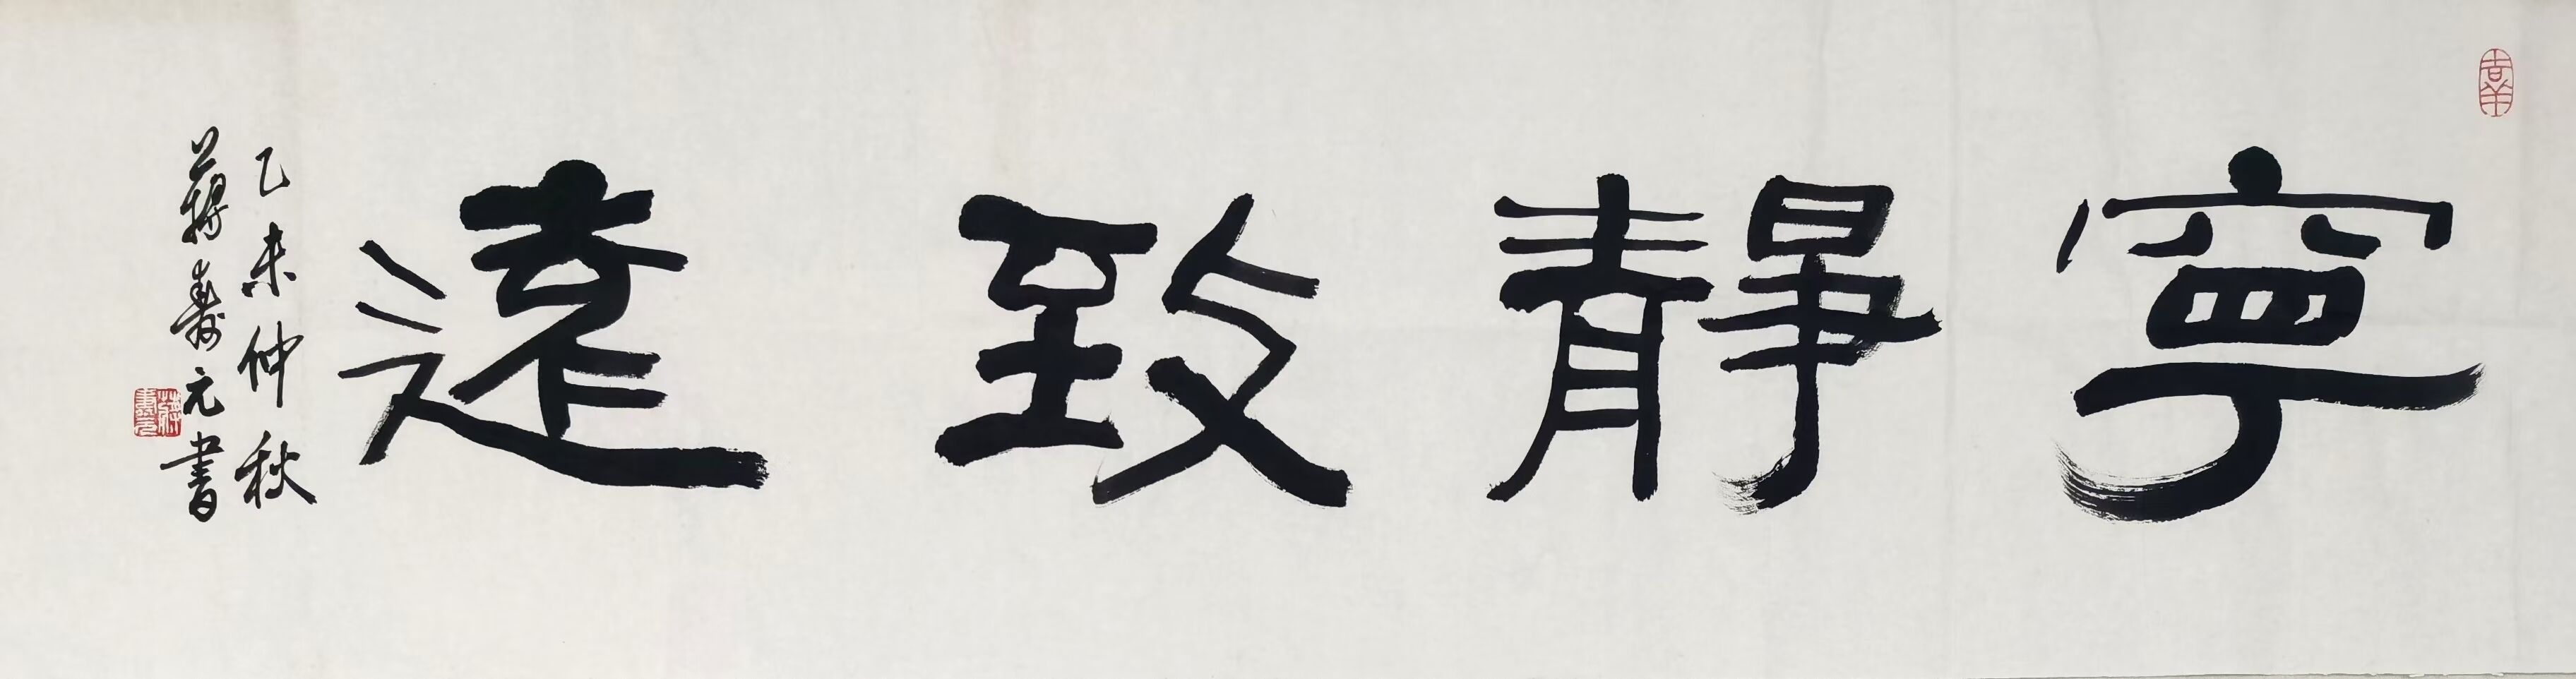 寧靜致遠
乙未仲秋
蔣壽元書
蔣壽元